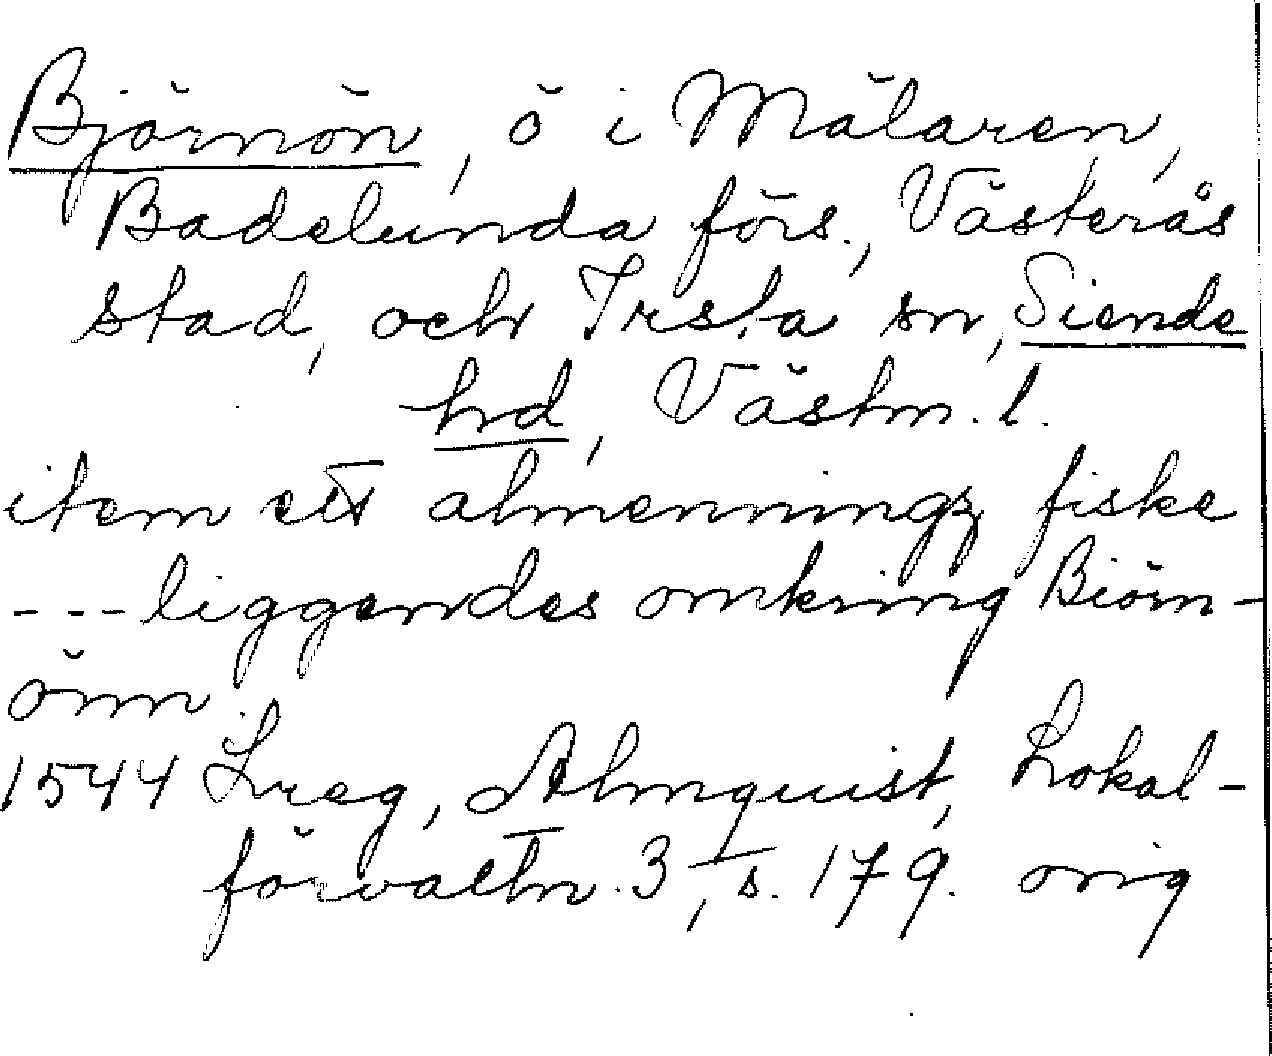 Björnön, ö i Mälaren,
Badelunda förs., Västerås
stad, och Irsta sn, Siende
hd, Västm. l.
item ett almenningz fiske
--- liggendes omkring Biörn-
önn
1544 Lreg, Almquist, Lokal-
förvaltn. 3, s. 179. orig